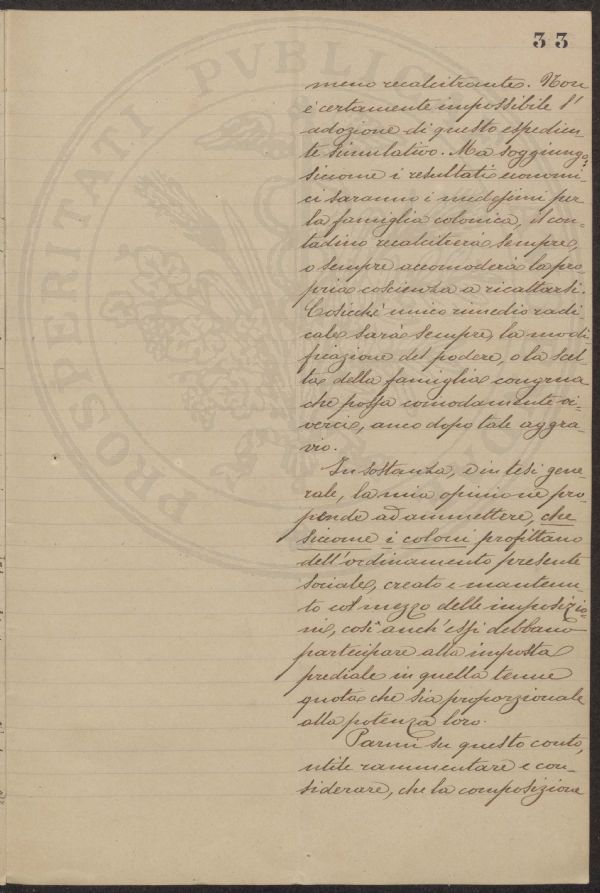 33
meno recalcitrante. Non
è certamente impossibile l'
adozione di questo espedien
te simulativo. Ma soggiungo,
siccome i resultati economi
ci saranno i medesimi per
la famiglia colonica, il con-
tadino recalcitrerà sempre,
o sempre accomoderà la pro-
pria coscienza a ricattarsi.
Cosicchè unico rimedio radi
cale sarà sempre, la modi
ficazione del podere, o la scel
ta della famiglia congrua
che possa comodamente vi-
verci, anco dopo tale aggra-
vio.
In sostanza, e in tesi gene-
rale, la mia opinione pro-
pende ad ammettere, che
siccome i coloni profittano
dell'ordinamento presente
sociale, creato e mantenu-
to col mezzo delle imposizio-
ni, così anch'essi debbano
partecipare alla imposta
prediale in quella tenue
quota che sia proporzionale
alla potenza loro.
Parmi su questo conto,
utile rammentare e con-
siderare, che la composizione
PROSPERITATI PVBLIC